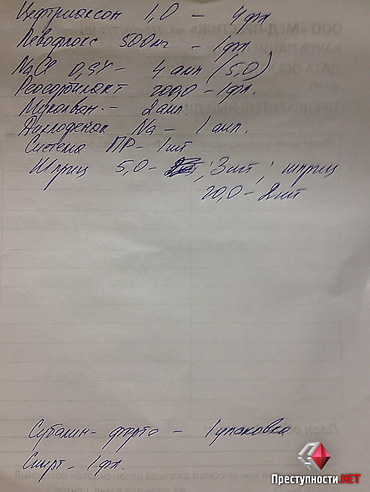 Цефтриаксон 1,0 – 4 фл
Левофлокс 500мг – 1фл.
NaCl 0,9% – 4 амп (5,0)
Реосорбилакт 200,0 – 1фл.
– 2 амп.
Диклофенак Na – 1 амп.
Система ПР – 1шт
Шприц 5,0 – 3шт; шприц
20,0 – 2шт
Субалин-форте – 1упаковка
Спирт – 1фл.
Преступности.НЕТ